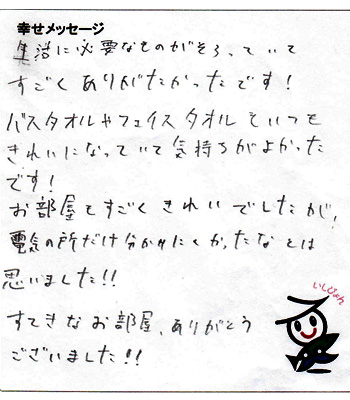 幸せメッセージ
生活に必要なものがそろっていて
すごくありがたかったです!
バスタオルやフェイスタオルもいつも
きれいになっていて気持ちがよかった
です!
お部屋もすごくきれいでしたが、
電気の所だけ分かりにくかったなとは
思いました!!
すてきなお部屋、ありがとう
ございました!!
いしぴょん